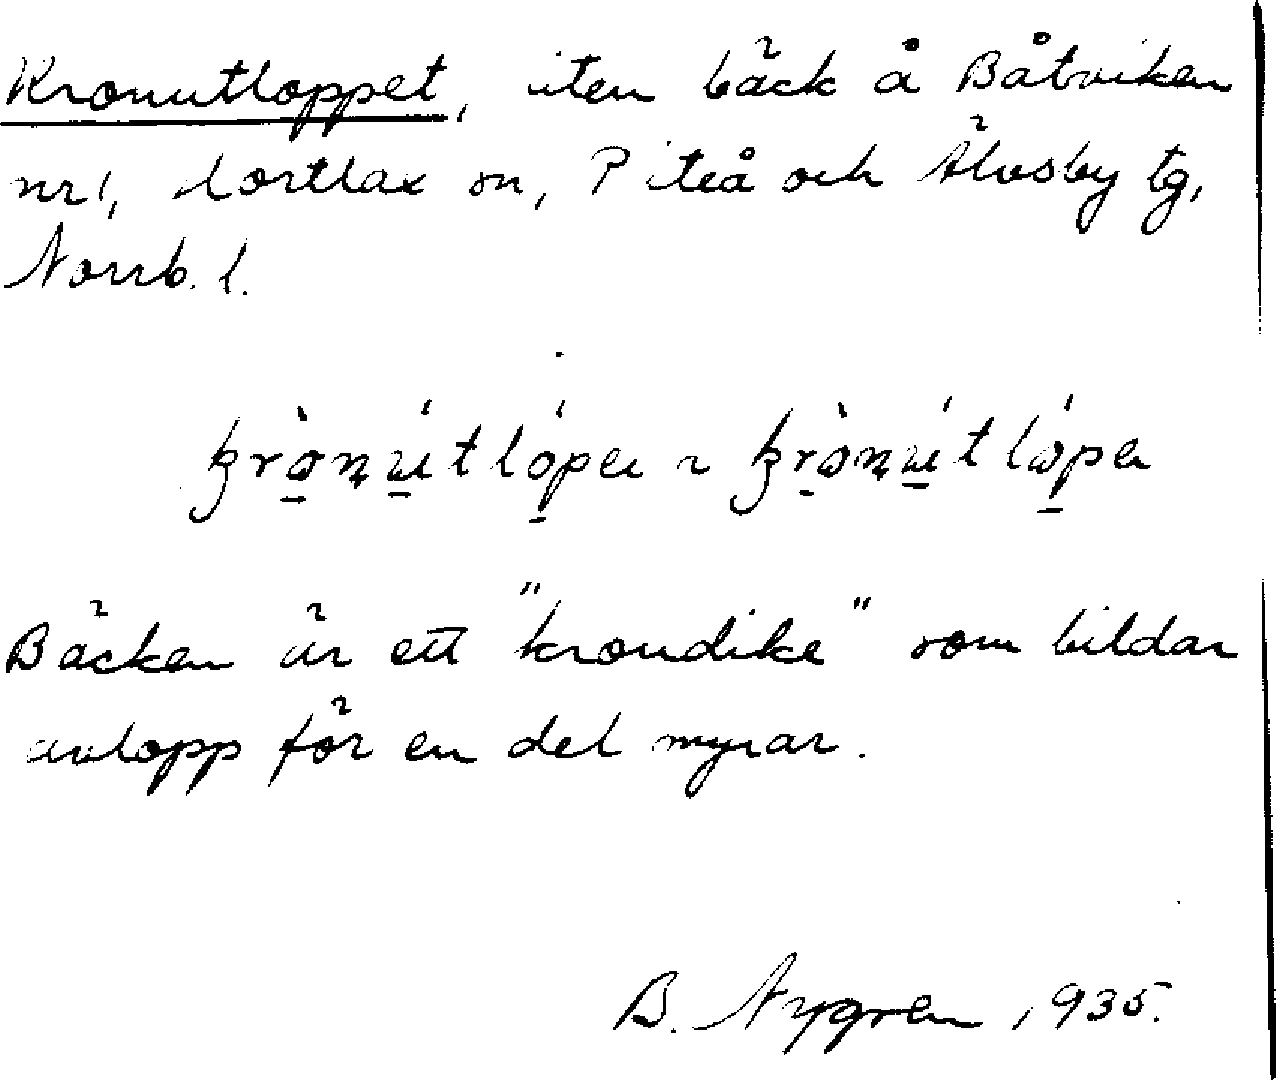 Kronutloppet, liten bäck å Båtviken
nr 1, Hortlax sn, Piteå och Älvsby tg,
Norrb. l.
krònútlópeɩ ~ krònútlópeɩ
Bäcken är ett "krondike" som bildar
avlopp för en del myrar.
B. Nygren 1935.